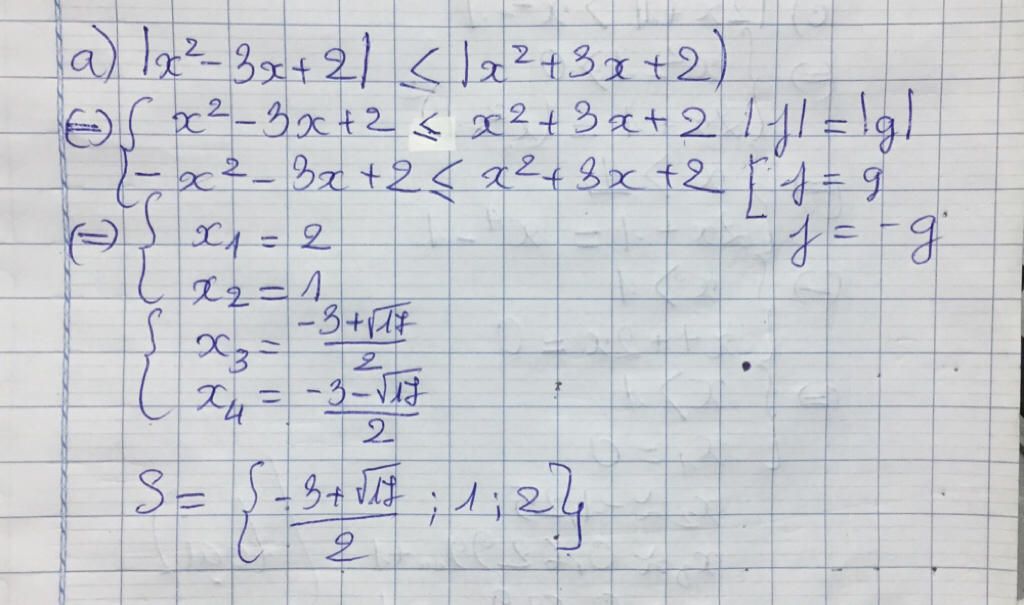 a) |x² - 3x + 2| ≤ |x² + 3x + 2)
(=) { x² - 3x + 2 ≤ x² + 3x + 2 |f| = |g|
{ - x² - 3x + 2 ≤ x² + 3x + 2 [ f = g
f = - g
(=) { x₁ = 2
x₂ = 1
{ x₃ = (-3 + √17)/2
x₄ = (-3 - √17)/2
S = { (-3 + √17)/2 ; 1 ; 2 }